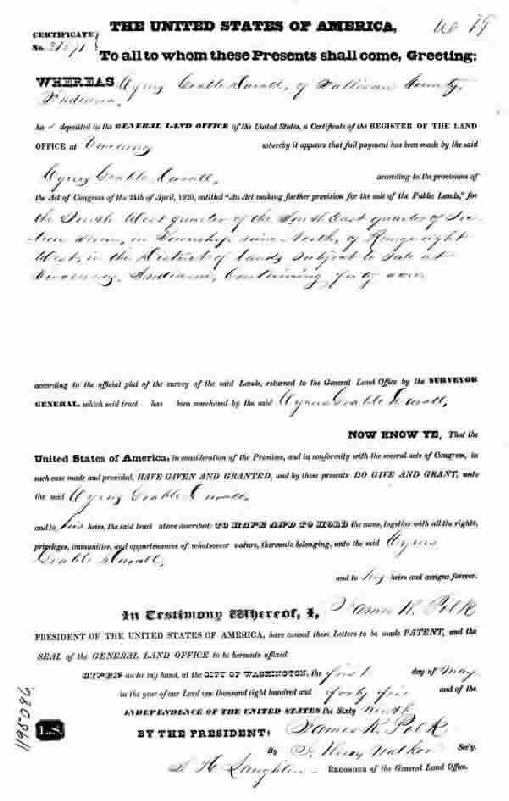 THE UNITED STATES OF AMERICA,
CERTIFICATE
No.
To all to whom these Presents shall come, Greeting:
WHEREAS Cyrus Grable of Sullivan County,
Indiana,
ha deposited in the GENERAL LAND OFFICE of the United States, a Certificate of the REGISTER OF THE LAND
OFFICE at Vincennes whereby it appears that full payment has been made by the said
Cyrus Grable according to the provisions of
the Act of Congress of the 24th of April, 1820, entitled "An Act making further provision for the sale of the Public Lands," for
the South West quarter of the South East quarter of Sec-
tion in Township nine North, of Range eight
West, in the District of Lands subject to Sale at
Vincennes, Indiana, Containing forty acres
according to the official plat of the survey of the said Lands, returned to the General Land Office by the SURVEYOR
GENERAL, which said tract has been purchased by the said Cyrus Grable
NOW KNOW YE, That the
United States of America, in consideration of the Premises, and in conformity with the several acts of Congress, in
such case made and provided, HAVE GIVEN AND GRANTED, and by these presents DO GIVE AND GRANT, unto
the said Cyrus Grable
and to his heirs, the said tract above described: TO HAVE AND TO HOLD the same, together with all the rights,
privileges, immunities, and appurtenances of whatsoever nature, thereunto belonging, unto the said Cyrus
Grable
and to his heirs and assigns forever.
In Testimony Whereof, I, James K. Polk
PRESIDENT OF THE UNITED STATES OF AMERICA, have caused these Letters to be made PATENT, and the
SEAL of the GENERAL LAND OFFICE to be hereunto affixed.
GIVEN under my hand, at the CITY OF WASHINGTON, the first day of May
in the year of our Lord one thousand eight hundred and forty five and of the
INDEPENDENCE OF THE UNITED STATES the Sixty ninth
BY THE PRESIDENT: James K. Polk
By J. Knox Walker Sec'y.
S. H. Laughlin RECORDER of the General Land Office.
L.S.